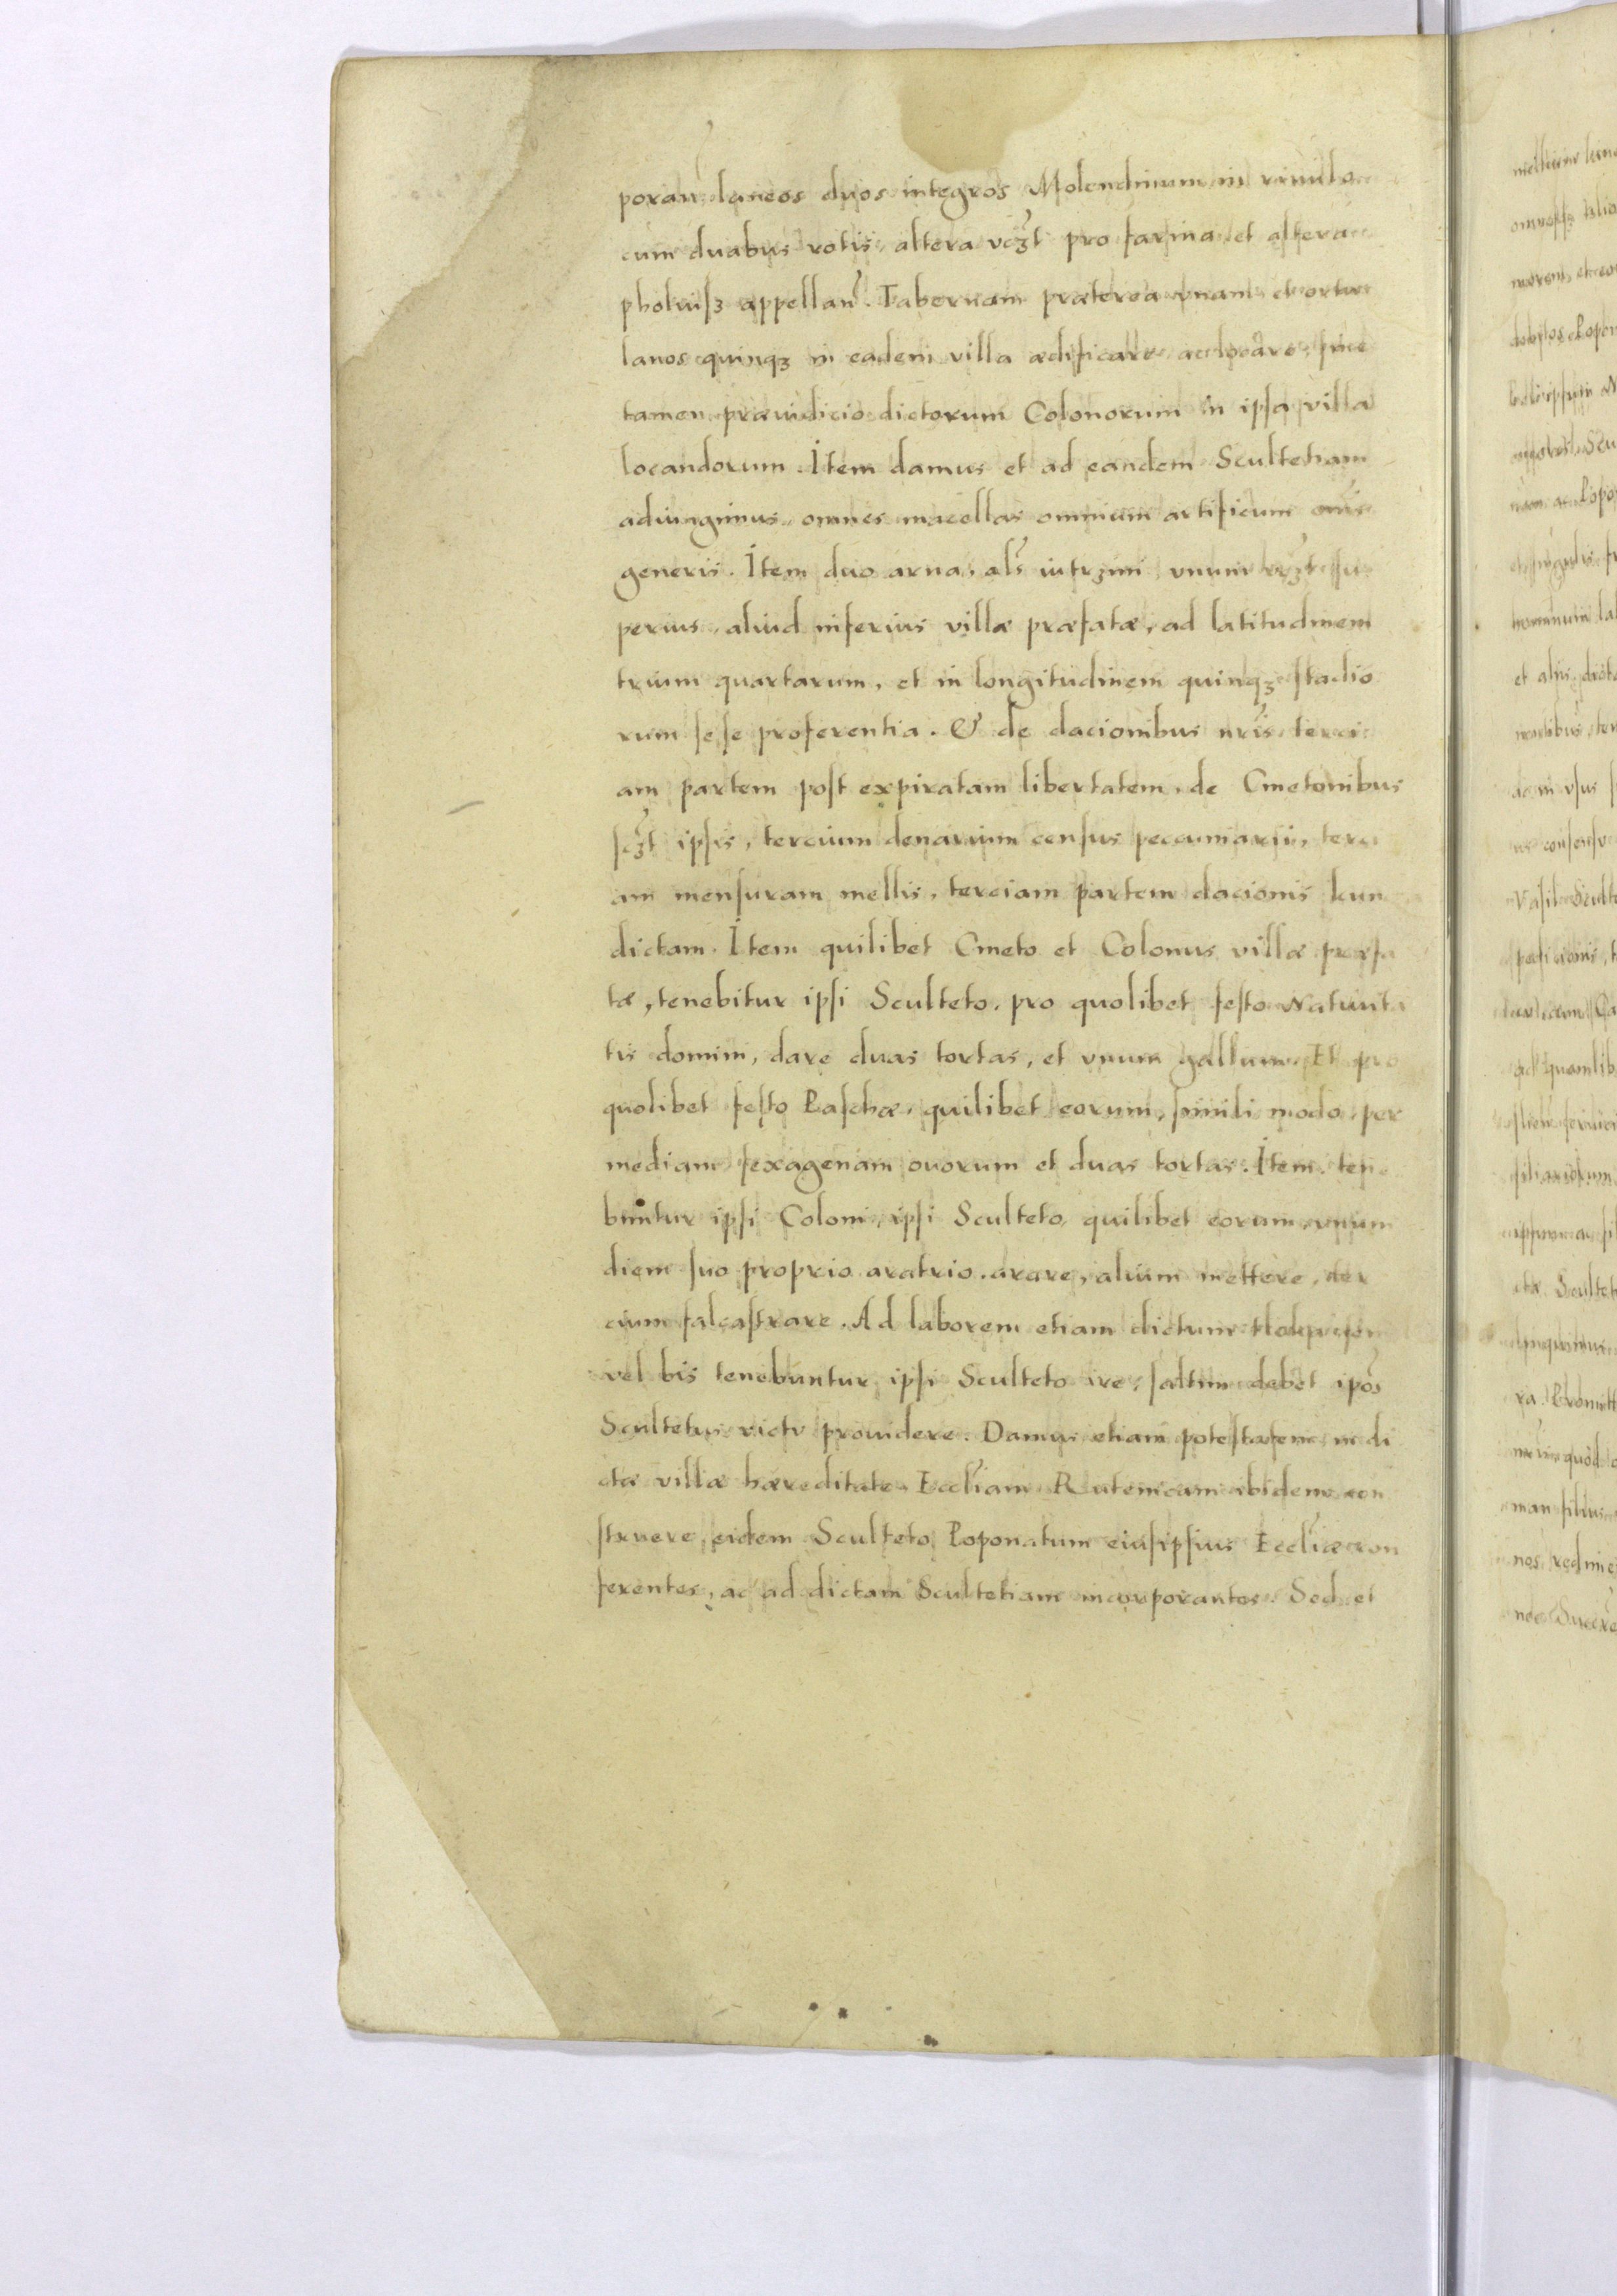 poran laneos duos integros Molendinum in rivulo
cum duabus rotis, altera vczt pro farina et altera
pholuſz appellan. Tabernam præterea vnam et ortu
lanos quinqꝫ in eadem villa ædificare ac locare, ſine
tamen præiudicio dictorum Colonorum in ipſa villa
locandorum. Item damus et ad eandem Scultetiam
adiungimus omnes macellas omnium artificum
generis. Item duo arua, als iutrzini vnum vczt ſu
perius, aliud inferius villæ præfatæ, ad latitudinem
trium quartarum, et in longitudinem quinqꝫ ſtadio
rum ſeſe proferentia. & de dacionibus nris terci
am partem poſt expiratam libertatem, de Cmetonibus
ſczt ipſis, tercium denarium cenſus pecuniarii, terci
am menſuram mellis, terciam partem dacionis
dictam. Item quilibet Cmeto et Colonus villæ præfa
tæ, tenebitur ipſi Sculteto, pro quolibet feſto Natiuita
tis domini, dare duas tortas, et vnum gallum. Et pro
quolibet feſto Paſchæ, quilibet eorum, ſimili modo, per
mediam ſexagenam ouorum et duas tortas. Item tene
buntur ipſi Coloni, ipſi Sculteto, quilibet eorum, vnum
diem ſuo proprio aratrio arare, alium mettere, ter
cium falcaſtrare. Ad laborem etiam dictum
vel bis tenebuntur ipſi Sculteto ire, ſaltim debet ipos
Scultetus victu prouidere. Damus etiam poteſtatem in di
ctæ villæ hæreditate Eccliam Rutenicam ibidem con
ſtruere, eidem Sculteto Poponatum eiuſipſius Eccliæ con
ferentes, ac ad dictam Scultetiam incorporantes. Sed et